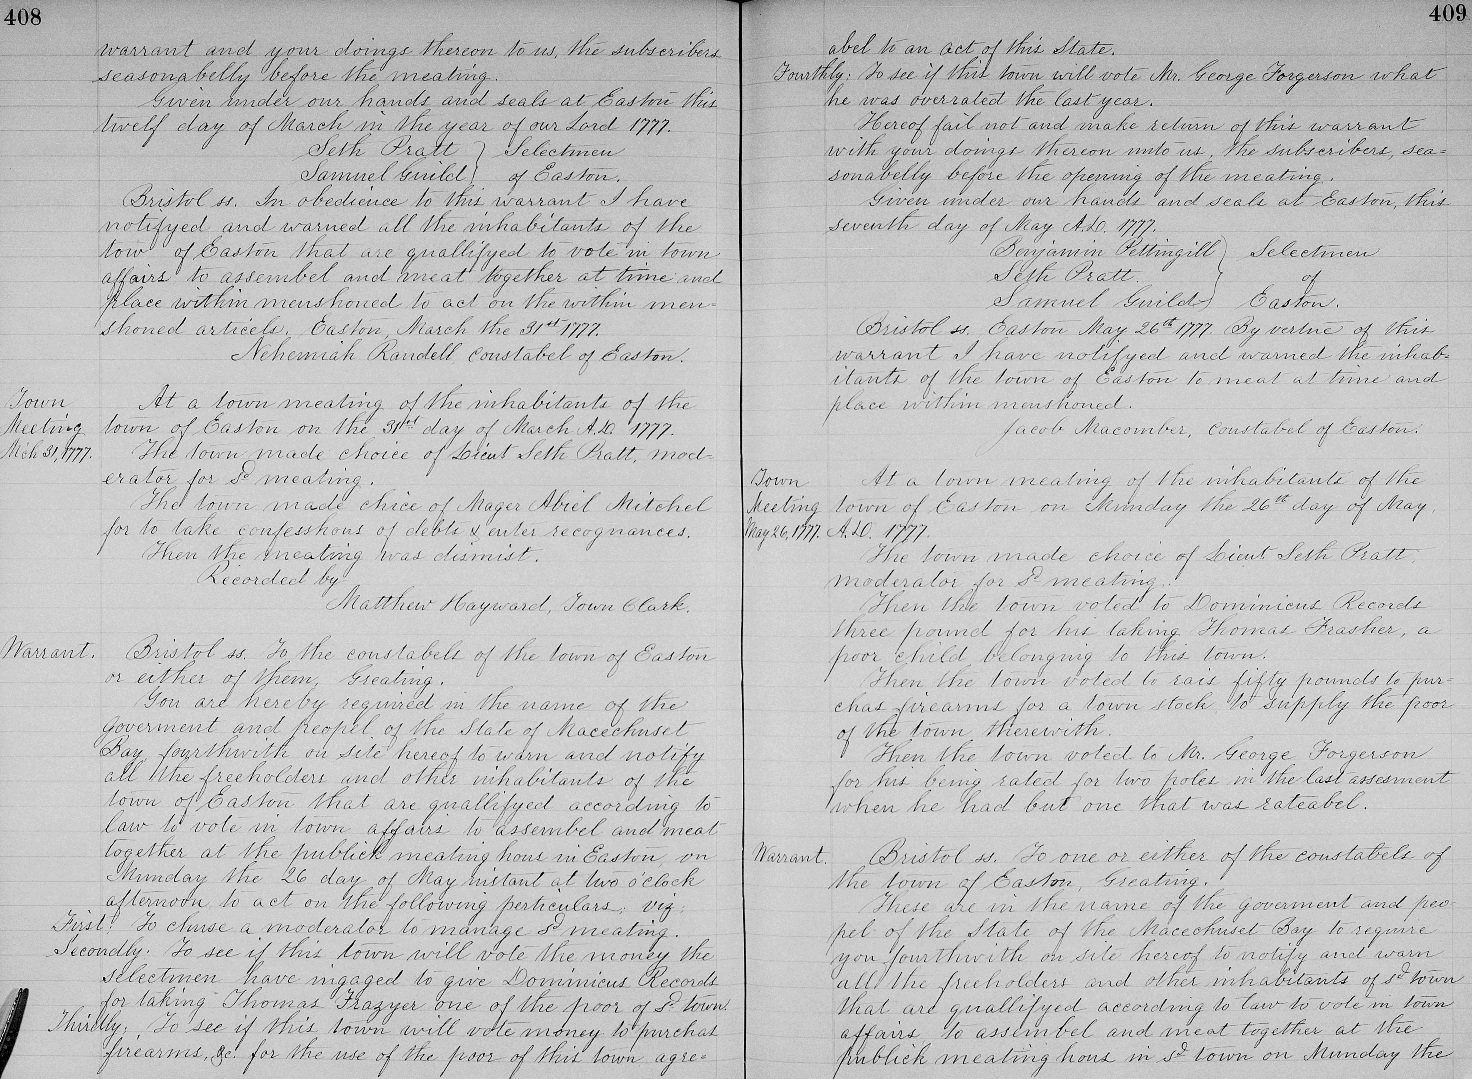 408
warrant and your doings thereon to us, the subscribers
seasonabelly before the meating.
Given under our hands and seals at Easton this
twelf day of March in the year of our Lord 1777.
Seth Pratt } Selectmen
Samuel Guild } of Easton.
Bristol ss. In obedience to this warrant I have
notifyed and warned all the inhabitants of the
tow of Easton that are quallifyed to vote in town
affairs to assembel and meat together at time and
place within menshoned to act on the within men=
shoned articels. Easton, March the 31st 1777.
Nehemiah Randell constabel of Easton.
Town
Meeting
Mch 31, 1777.
At a town meating of the inhabitants of the
town of Easton on the 31st day of March A.D. 1777.
The town made choice of Lieut Seth Pratt, mod-
erator for Sd meating.
The town made chice of Mager Abiel Mitchel
for to take confesshons of debts & enter recognances.
Then the meating was dismist.
Recorded by
Matthew Hayward, Town Clark.
Warrant.
Bristol ss. To the constabels of the town of Easton
or either of them, Greating.
You are hereby required in the name of the
goverment and peopel of the State of Macechuset
Bay fourthwith on site hereof to warn and notify
all the freeholders and other inhabitants of the
town of Easton that are quallifyed according to
law to vote in town affairs to assembel and meat
together at the publick meating hous in Easton, on
Munday the 26 day of May instant at two o'clock
afternoon, to act on the following perticulars; viz:
First: To chuse a moderator to manage Sd meating.
Secondly: To see if this town will vote the money the
selectmen have ingaged to give Dominicus Records
for taking Thomas Frazyer one of the poor of Sd town.
Thirdly: To see if this town will vote money to purchas
firearms, &c. for the use of the poor of this town agre=
409
abel to an act of this State.
Fourthly: To see if this town will vote Mr. George Forgerson what
he was overrated the last year.
Hereof fail not and make return of this warrant
with your doings thereon unto us, the subscribers, sea=
sonabelly before the opening of the meating.
Given under our hands and seals at Easton, this
seventh day of May A.D. 1777.
Benjamin Pettingill } Selectmen
Seth Pratt. } of
Samuel Guild } Easton.
Bristol ss. Easton May 26th 1777. By vertue of this
warrant I have notifyed and warned the inhab-
itants of the town of Easton to meat at time and
place within menshoned.
Jacob Macomber, constabel of Easton.
Town
Meeting
May 26, 1777.
At a town meating of the inhabitants of the
town of Easton on Munday the 26th day of May,
A.D. 1777.
The town made choice of Lieut Seth Pratt,
moderator for Sd meating.
Then the town voted to Dominicus Records
three pound for his taking Thomas Frasher, a
poor child belonging to this town.
Then the town voted to rais fifty pounds to pur=
chas firearms for a town stock to supply the poor
of the town therewith.
Then the town voted to Mr. George Forgerson
for his being rated for two poles in the last assesment
when he had but one that was rateabel.
Warrant.
Bristol ss. To one or either of the constabels of
the town of Easton, Greating.
These are in the name of the goverment and peo-
pel of the State of the Macechuset Bay to require
you fourthwith on site hereof to notify and warn
all the freeholders and other inhabitants of sd town
that are quallifyed according to law to vote in town
affairs to assembel and meat together at the
publick meating hous in sd town on Munday the